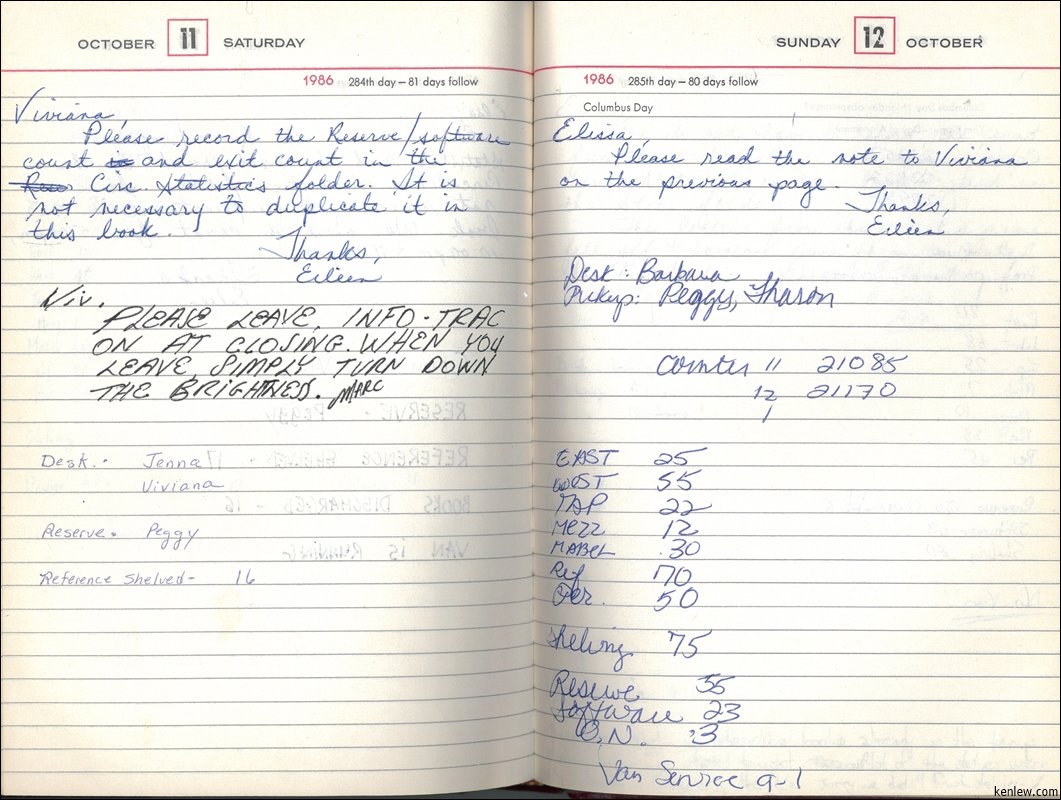 OCTOBER 11 SATURDAY
1986 284th day — 81 days follow
Viviana,
Please record the Reserve/software
count is and exit count in the
Res. Circ. Statistics folder. It is
not necessary to duplicate it in
this book.
Thanks,
Eileen
Viv.
PLEASE LEAVE INFO-TRAC
ON AT CLOSING. WHEN YOU
LEAVE, SIMPLY TURN DOWN
THE BRIGHTNESS. MARC
Desk. - Jenna
Viviana
Reserve. Peggy
Reference Shelved - 16
SUNDAY 12 OCTOBER
1986 285th day — 80 days follow
Columbus Day
Elissa,
Please read the note to Viviana
on the previous page.
Thanks,
Eileen
Desk: Barbara
Pickup: Peggy, Sharon
Counter 11 21085
12 21170
1
EAST 25
WEST 55
TAP 22
MEZZ 12
MABEL 30
Ref 70
Per. 50
Shelving 75
Reserve 55
Software 23
O.N. 3
Van Service 9-1
kenlew.com